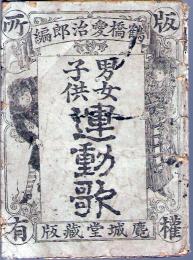 版權所有
鶴橋愛治郎編
男女
子供
運動歌
鹿城堂藏版